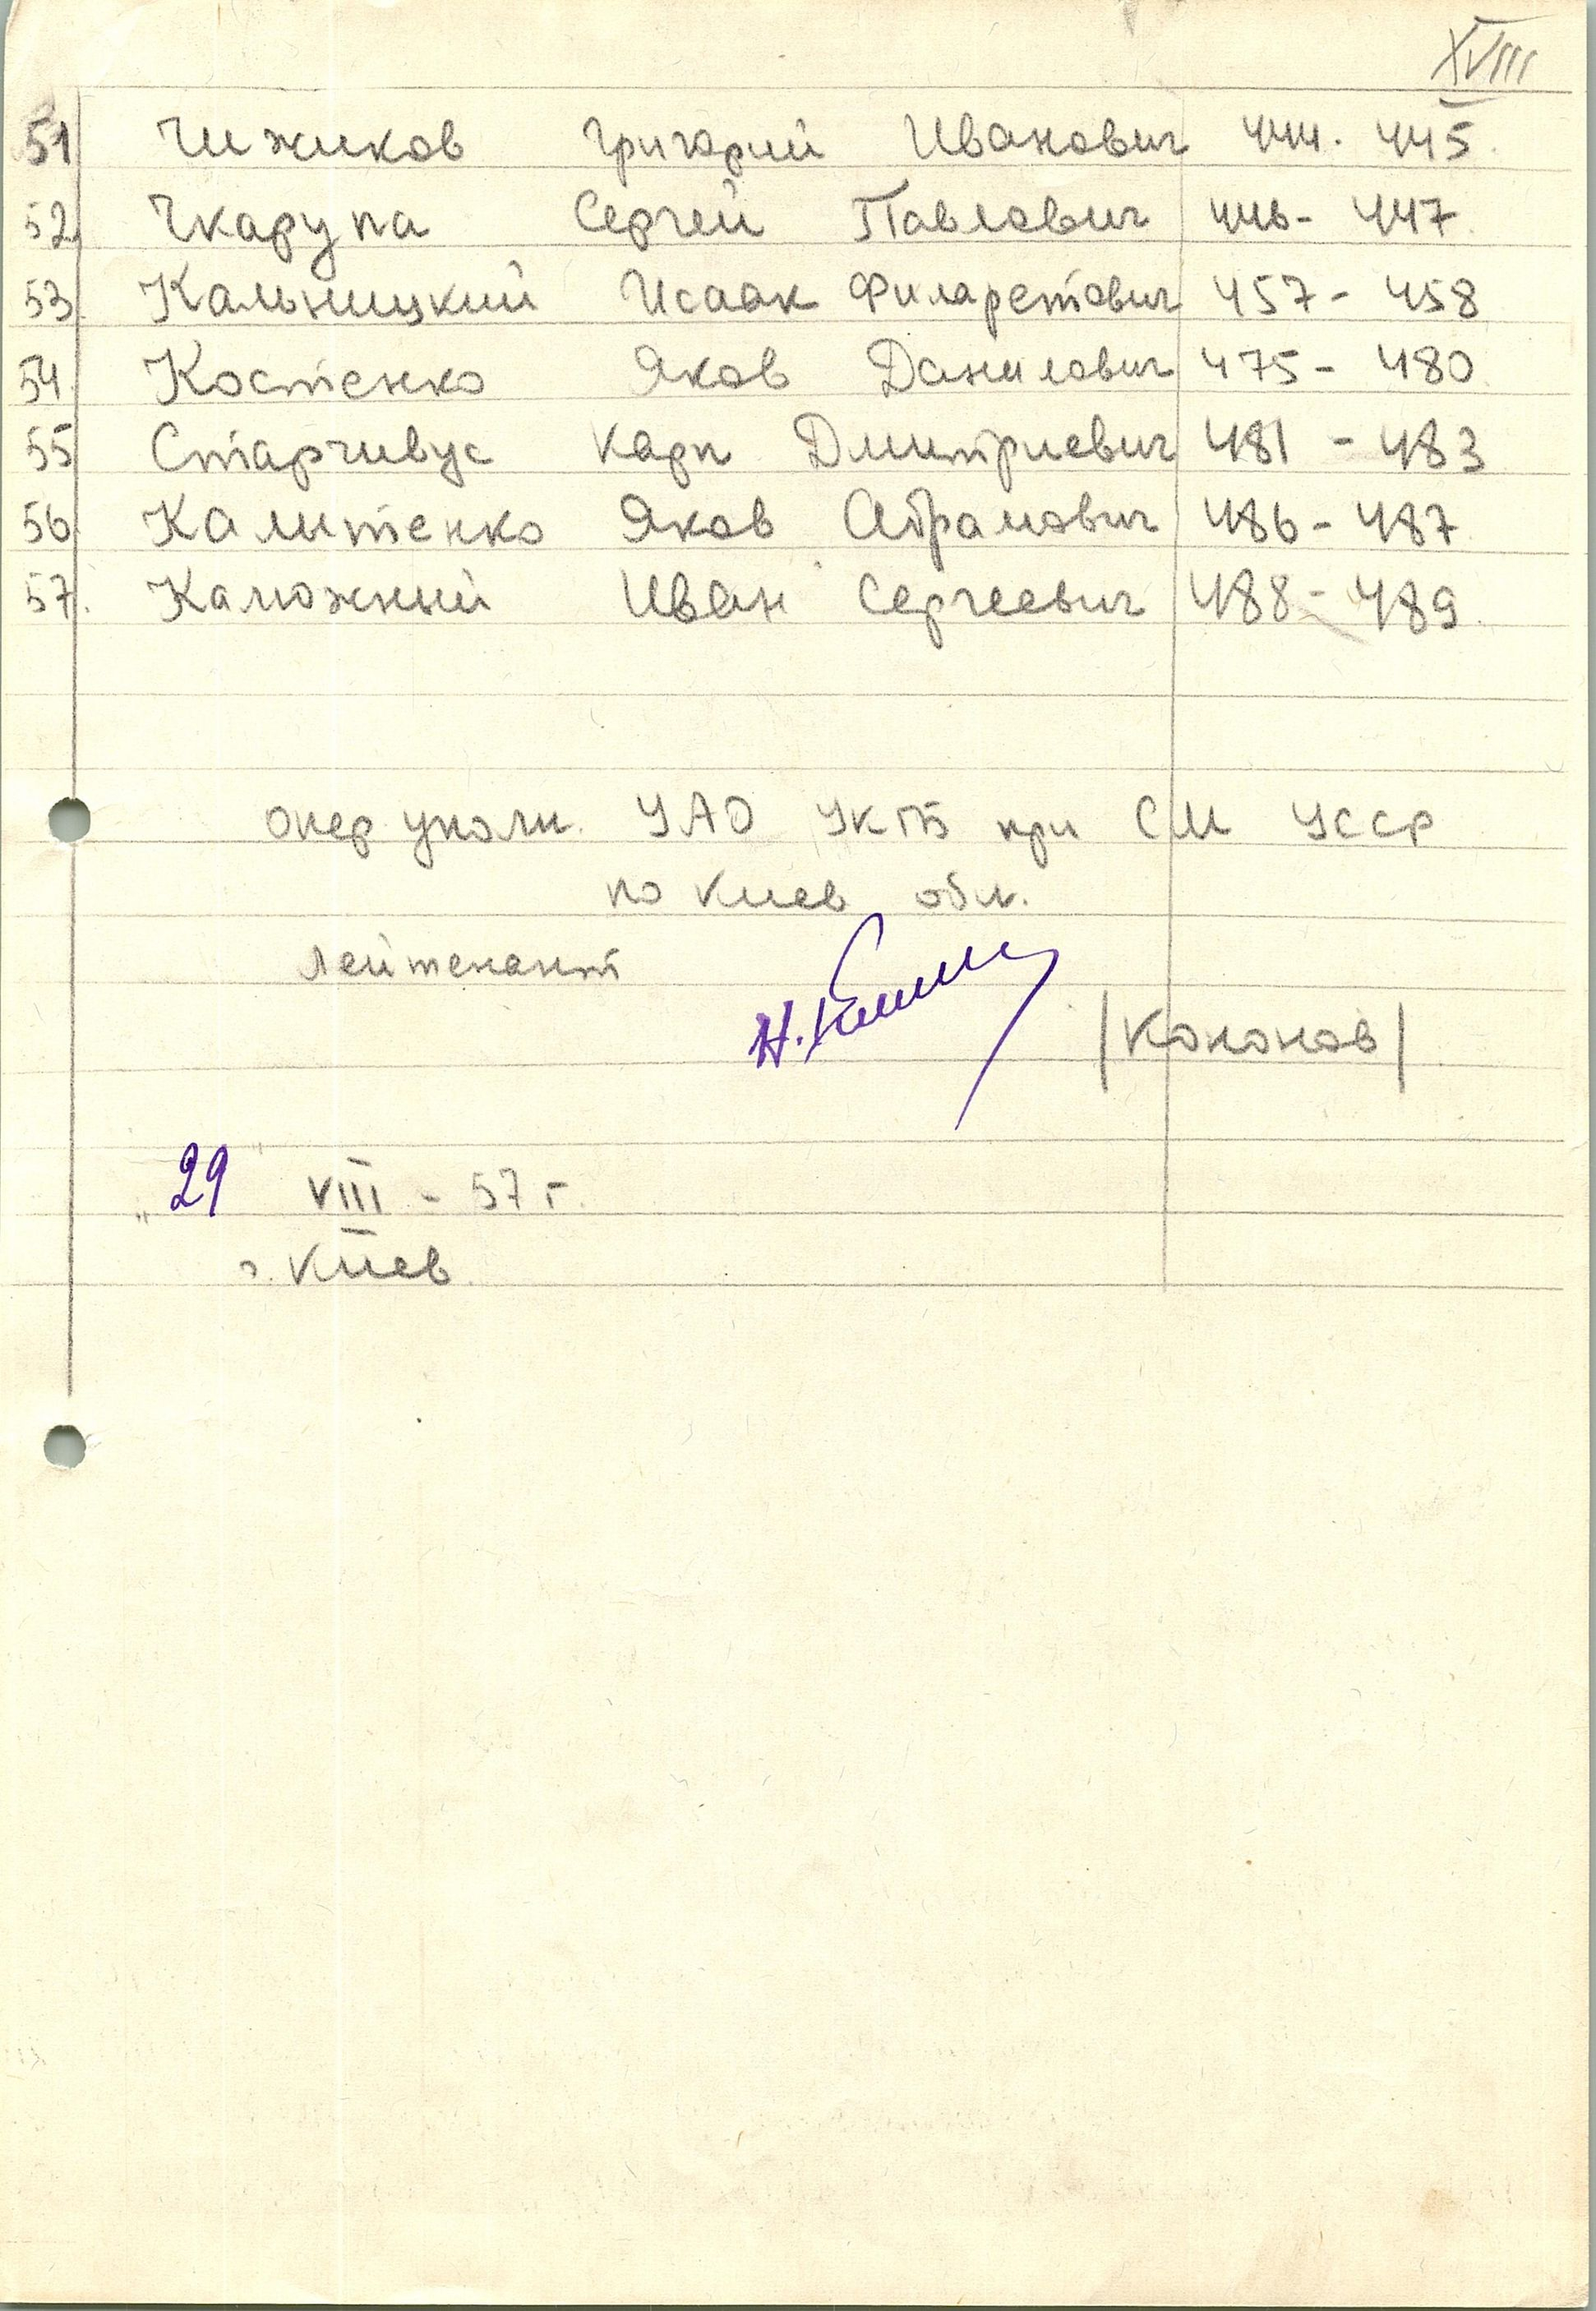 XVIII
51 Чижиков Григорий Иванович 444. 445.
52 Чкарупа Сергей Павлович 446- 447.
53. Кальницкий Исаак Филаретович 457- 458
54. Костенко Яков Данилович 475- 480
55 Старчивус Карп Дмитриевич 481 - 483
56. Калитенко Яков Абрамович 486- 487.
57. Калюжный Иван Сергеевич 488- 489.
Опер уполн. УАО УКГБ при СМ УССР
по Киев обл.
лейтенант
Н.
/Кононов/
„29" VIII - 57 г.
г. Киев.